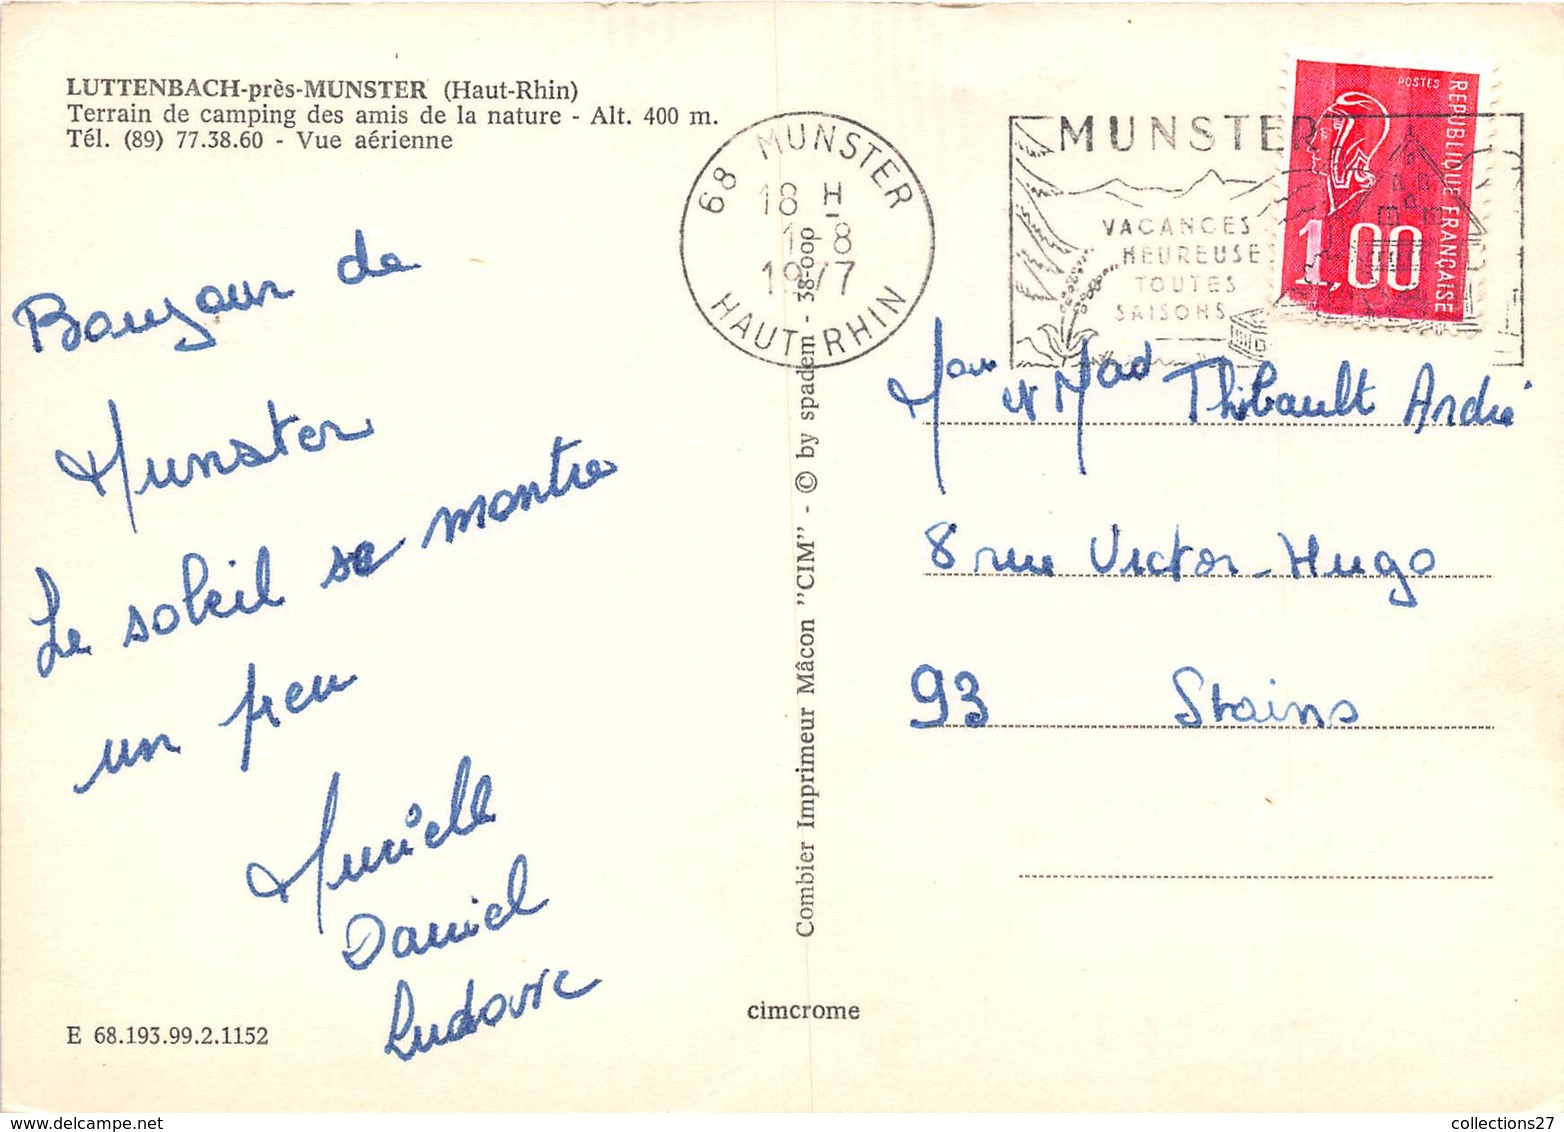 LUTTENBACH-près-MUNSTER (Haut-Rhin)
Terrain de camping des amis de la nature - Alt. 400 m.
Tél. (89) 77.38.60 - Vue aérienne
Bonjour de
Munster
Le soleil se montre
un peu
Murielle
Daniel
Ludovic
E 68.193.99.2.1152
68 MUNSTER
18 H
1-8
1977
HAUT-RHIN
Combier Imprimeur Mâcon "CIM" - © by spadem - 38-00p
cimcrome
MUNSTER
VACANCES
HEUREUSES
TOUTES
SAISONS
POSTES
REPUBLIQUE FRANÇAISE
1,00
et Mad Thibault André
8 rue Victor-Hugo
93 Stains
collections27